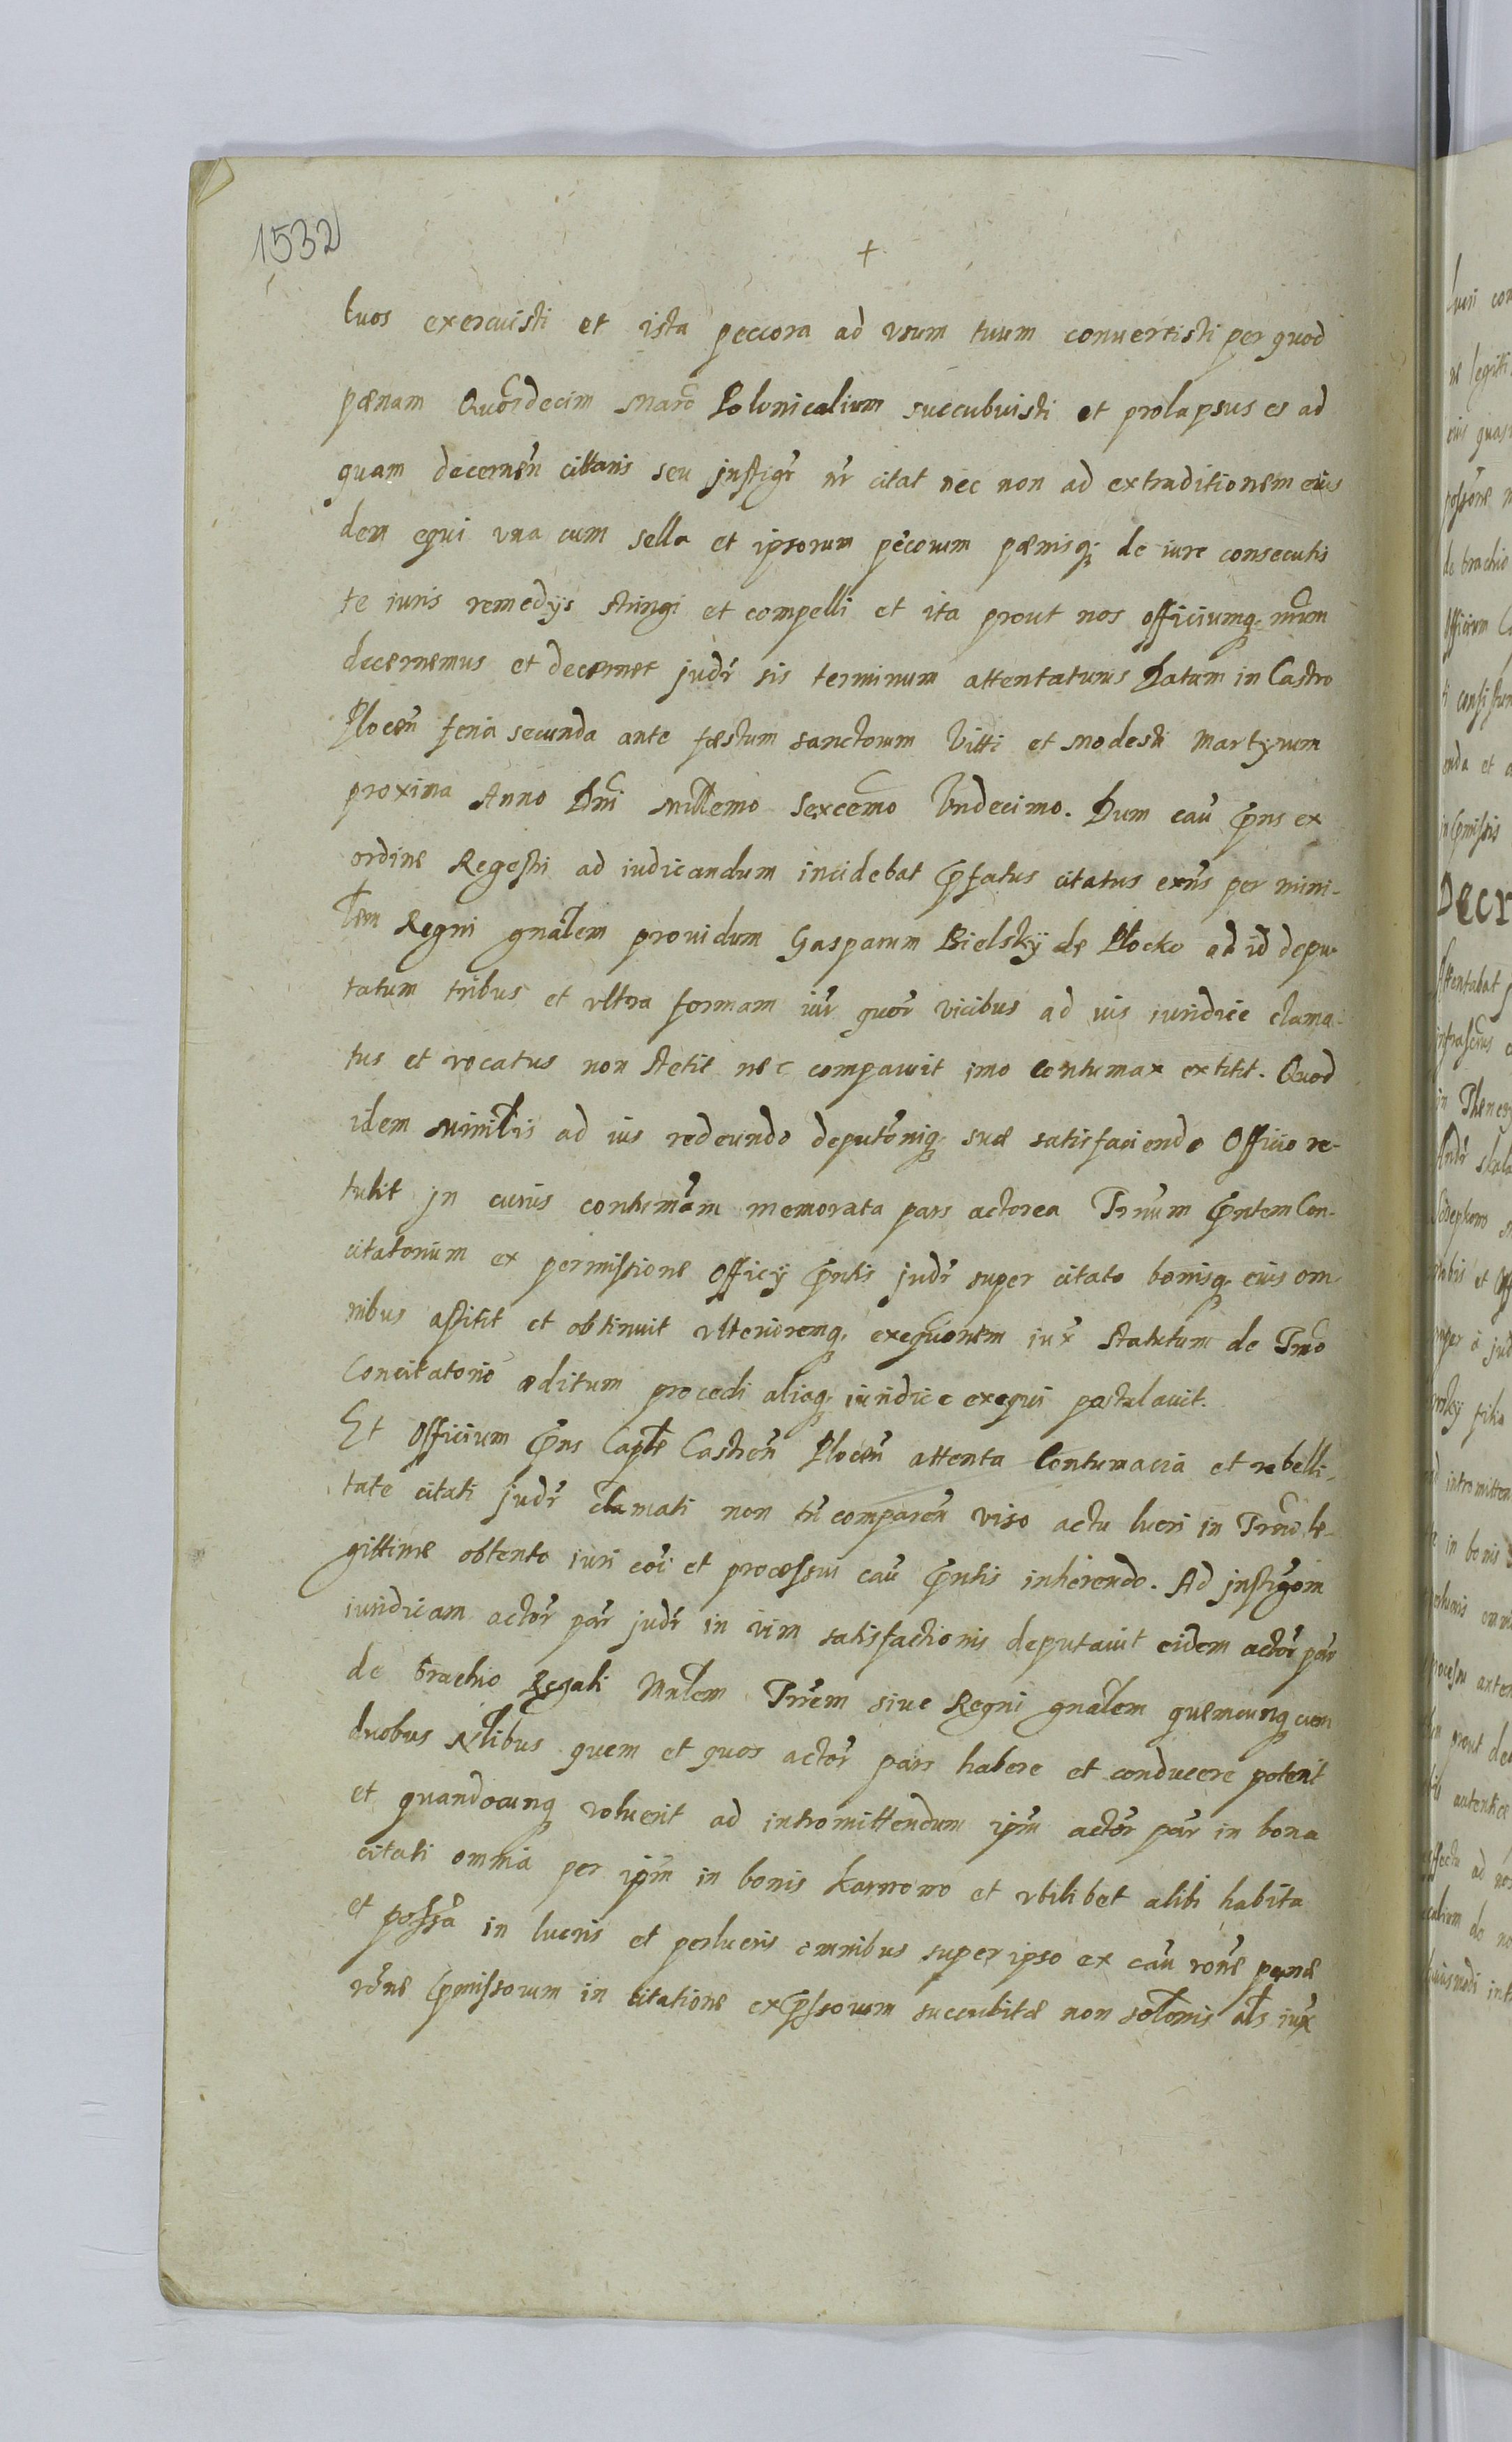 1532
+
tuos exercuisti et ista peccora ad vsum tuum conuertisti per quod
pænam Quordecim Marc Polonicalium succubuisti et prolapsus es ad
quam decernen cittaris seu jnstigr nr citat nec non ad extraditionem eius
dem equi vna cum sella et ipsorum pecorum pænisq; de iure consecutis
te iuris remedys stringi et compelli et ita prout nos officiumq; nrum
decernemus et decernet judr sis terminum attentaturus Datum in Castro
Plocen feria secunda ante fæstum sanctorum Vitti et Modesti Martyrum
proxima Anno Dni Millemo Sexcemo Vndecimo. Dum cau pns ex
ordine Regestri ad iudicandum incidebat pfatus citatus exns per mini-
lem Regni gnalem prouidum Gasparum Bielsky de Plocko ad id depu-
tatum tribus et vltra formam iur quor vicibus ad ius iuridice clama-
tus et vocatus non stetit nec comparuit imo contumax extitit. Quod
idem Minilis ad ius redeundo deputoniq; suæ satisfaciendo Officio re-
tulit jn cuius contumam memorata pars actorea Trnum pntem Con-
citatorium ex permissione Officy pntis judr super citato bonisq; eius om
nibus astitit et obtinuit vlterioremq; exequonem iux statutum de Trno
Concitatorio æditum procedi aliaq; iuridice exequi postulauit.
Et Officium pns Caple Castren Plocen attenta Contumacia et rebelli-
tate citati judr clamati non tn comparen viso actu lucri in Trno le-
gittime obtento iuri coi et processui cau pntis inherendo. Ad jnstigom
iuridicam actor par judr in vim satisfactionis deputauit eidem actor par
de brachio Regali Mnlem Trrem siue Regni gnalem quemcunq; cum
duobus Nlibus quem et quos actor pars habere et conducere poterit
et quandocunq; voluerit ad intromittendum ipm actor par in bona
citati omnia per ipm in bonis Karwowo et vbilibet alibi habita
et possa in lucris et perlucris omnibus super ipso ex cau rone pænæ
rone pmissorum in citatione expssorum succubitæ non solonis als iux